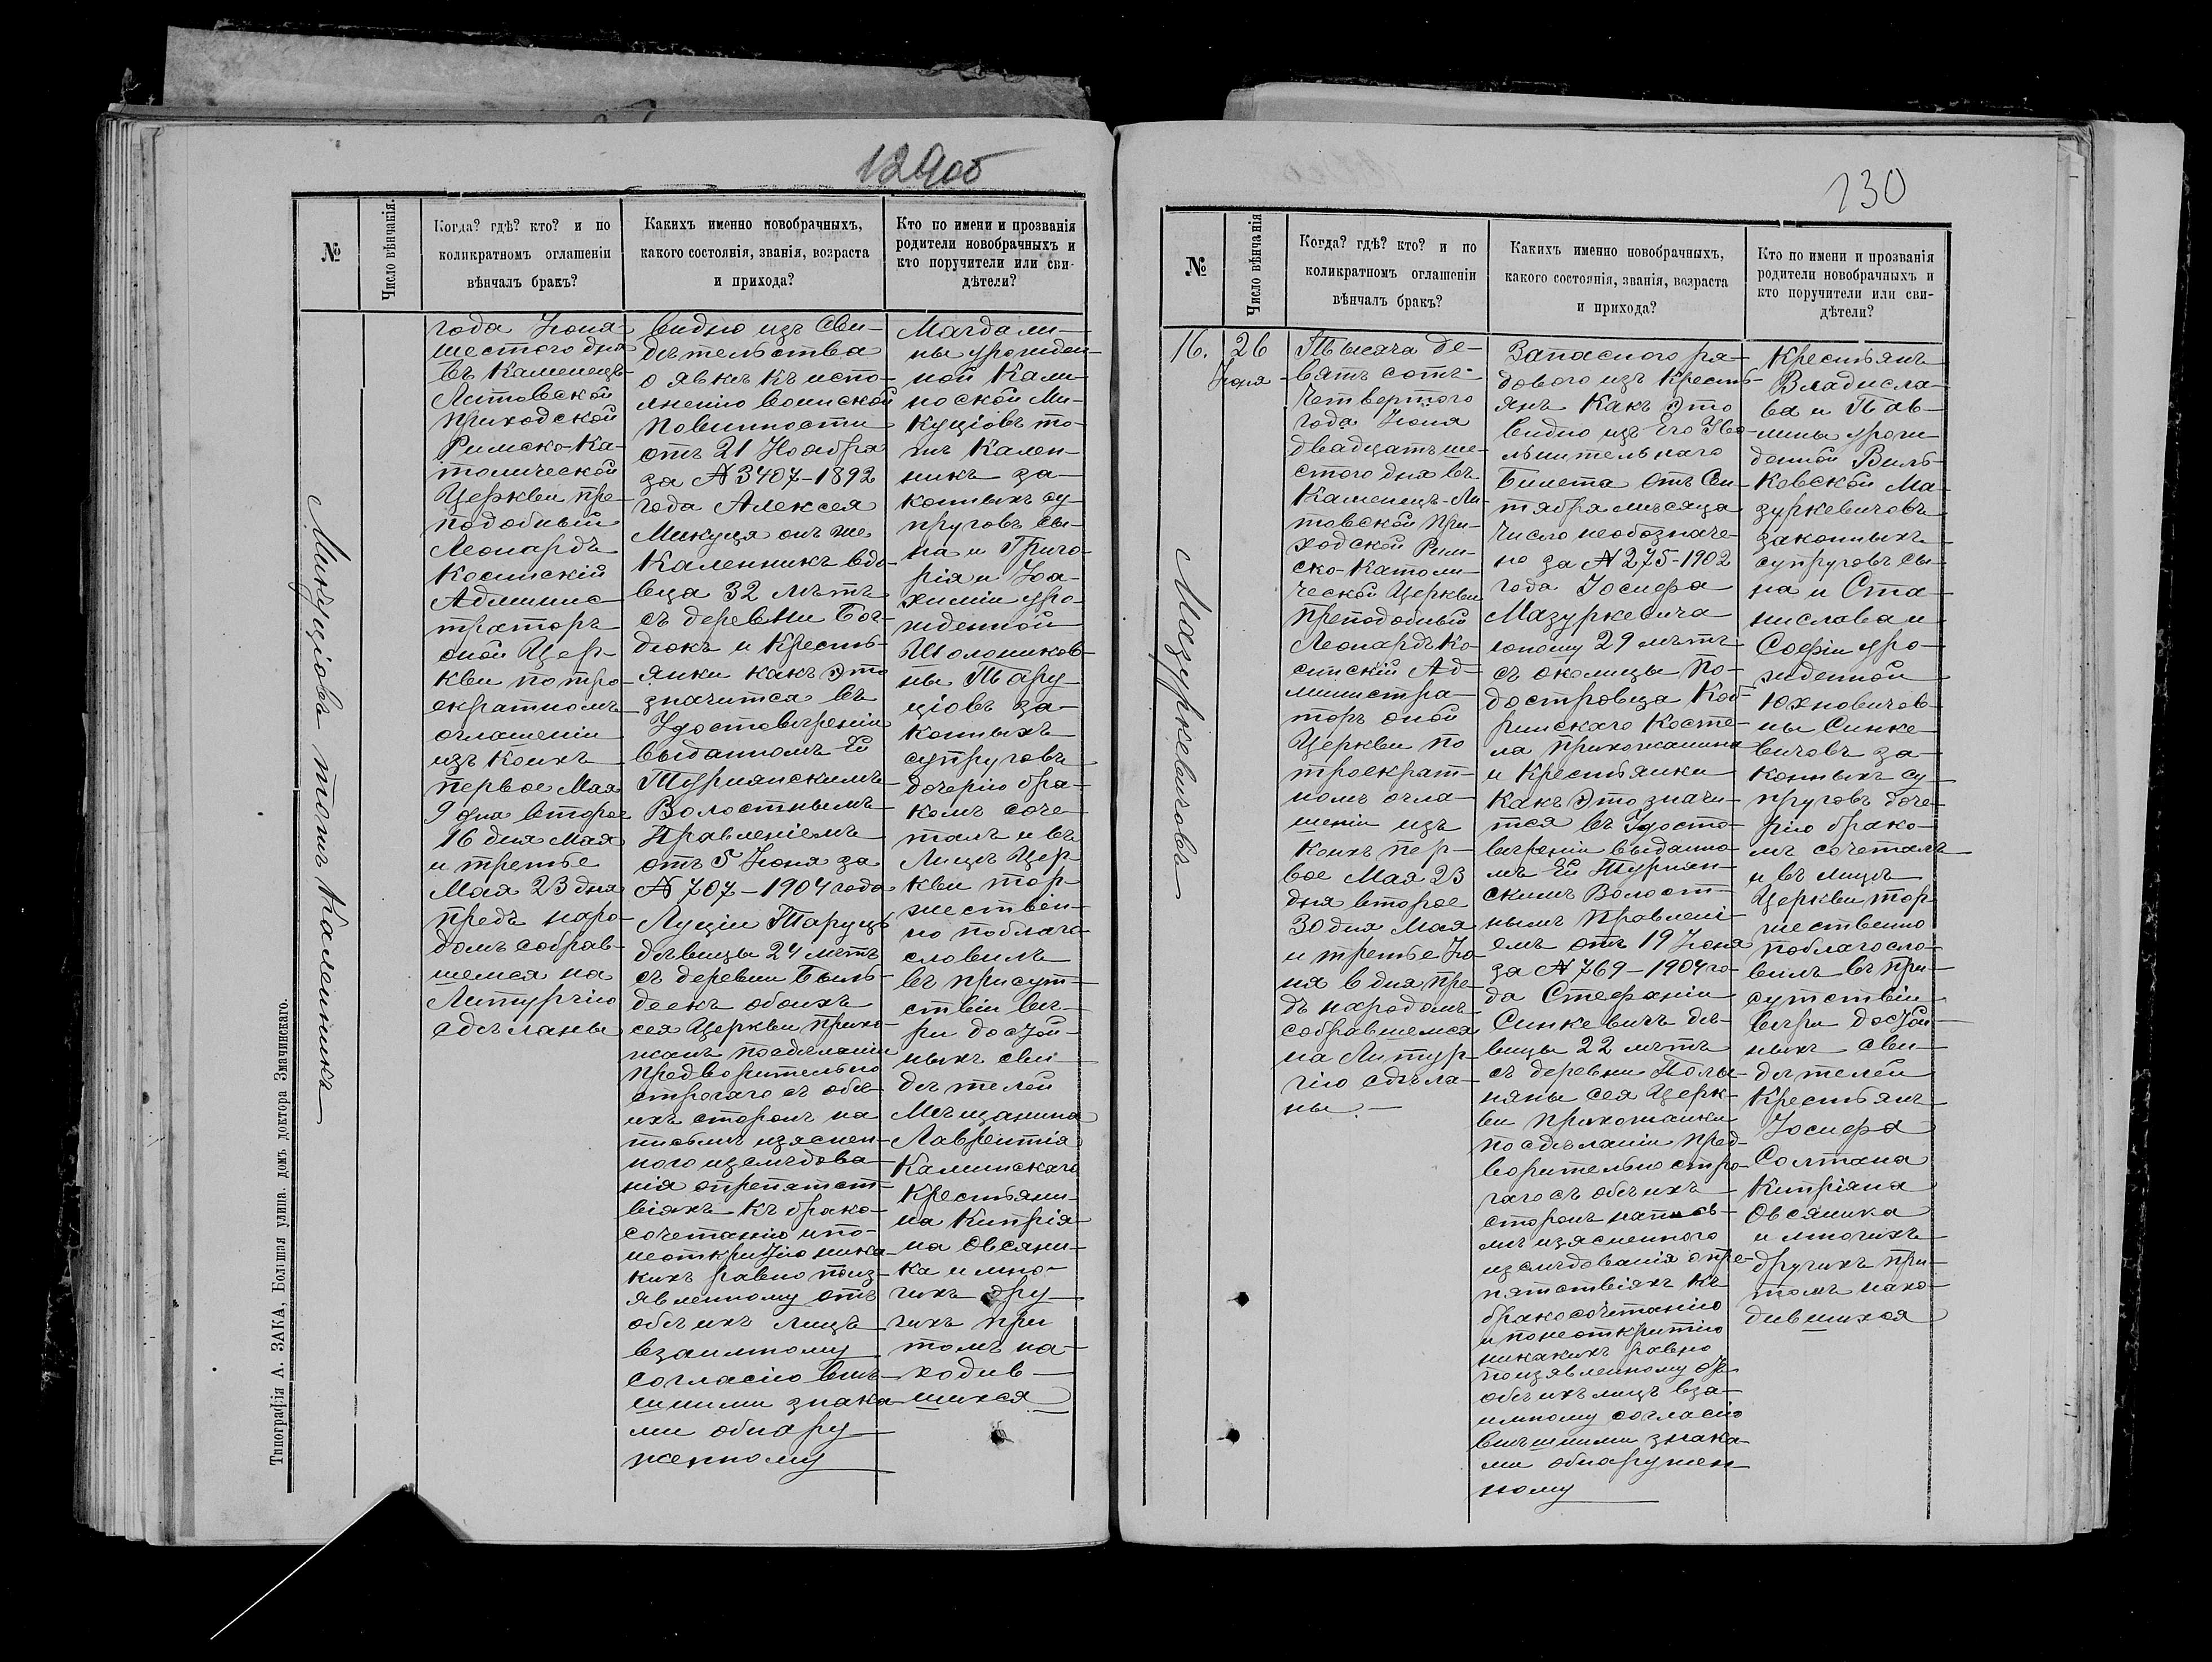 129об
№
Число вѣнчанія.
Когда? гдѣ? кто? и по
коликратномъ оглашеніи
вѣнчалъ бракъ?
Какихъ именно новобрачныхъ,
какого состоянія, званія, возраста
и прихода?
Кто по имени и прозванія
родители новобрачныхъ и
кто поручители или сви-
дѣтели?
Микуціовъ тожъ Каленникъ
года Іюня
шестого дня
въ Каменецъ-
Литовской
приходской
Римско-Ка-
толической
Церкви пре-
подобный
Леонардъ
Косинскій
Админис-
траторъ
оной Цер-
кви по тро-
екратномъ
оглашеніи
изъ коихъ
первое Мая
9 дня второе
16 дня Мая
и третье
Мая 23 дня
предъ наро-
домъ собрав-
шемся на
Литургію
сдѣланы
видно изъ Сви-
дѣтельства
о явкѣ къ испо-
лненію воинской
повинности
отъ 21 Ноября
за № 3407-1892
года Алексея
Микуця онъ же
Каленникъ вдо-
вца 32 лѣтъ
съ деревни Бог-
дюкъ и Кресть-
янки какъ это
значится въ
Удостовѣреніи
выданномъ Ей
Турнянскимъ
Волостнымъ
Правленіемъ
отъ 5 Іюня за
№ 707-1904 года
Луціи Таруць
дѣвицы 24 лѣтъ
съ деревни Быль-
деекъ обоихъ
сея Церкви прихо-
жанъ посдѣланіи
предворительно
строгаго съ обѣ-
ихъ сторонъ на
письмѣ изяснен-
ного изслѣдова-
нія опрепятст-
віяхъ къ брако-
сочетанію и по-
неоткрытію ника-
кихъ равно поиз-
явленному отъ
обѣихъ лицъ
взаимному
согласію внѣ-
шними знака-
ми обнару-
женному
Магдали-
ны урожден-
ной Кали-
ноской Ми-
куціовъ то-
жъ Кален-
никъ за-
конныхъ су-
пруговъ сы-
на и Григо-
рія и Іоа-
химіи уро-
жденной
Шолоников-
ны Тару-
ціовъ за-
конныхъ
супруговъ
дочерію бра-
комъ соче-
талъ и въ
Лицѣ Цер-
кви тор-
жествен-
но поблаго-
словилъ
въ присут-
ствіи вѣ-
ры достой-
ныхъ сви-
дѣтелей
Мѣщанина
Лаврентія
Калинскаго
Крестьяни-
на Кипрія-
на Овсяни-
ка и мно-
гихъ дру-
гихъ при
томъ на-
ходив-
шихся
Типографія А. ЗАКА, Большая улица. домъ доктора Змачинскаго.
130
№
Число вѣнчанія
Когда? гдѣ? кто? и по
коликратномъ оглашеніи
вѣнчалъ бракъ?
Какихъ именно новобрачныхъ,
какого состоянія, званія, возраста
и прихода?
Кто по имени и прозванія
родители новобрачныхъ и
кто поручители или сви-
дѣтели?
Мазуркевичовъ
16.
26
Іюня
Тысяча де-
вятъ сотъ
четвертого
года Іюня
двадцать ше-
стого дня въ
Каменецъ-Ли-
товской при-
ходской Рим-
ско-Католи-
ческой Церкви
преподобный
Леонардъ Ко-
синскій Ад-
министра-
торъ оной
Церкви по
троекрат-
номъ огла-
шеніи изъ
коихъ пер-
вое Мая 23
дня второе
30 дня Мая
и третье Ію-
ня 6 дня пре-
дъ народомъ
собравшемся
на Литур-
гію сдѣла-
ны.
Запасного ря-
дового изъ Кресть-
янъ какъ это
видно изъ Его Уво-
льнительнаго
Билета отъ Сен-
тября мѣсяца
число необозначе-
но за № 275-1902
года Іосифа
Мазуркевича
юношу 29 лѣтъ
съ околицы По-
достровца Коб-
ринскаго Косте-
ла прихожанина
и Крестьянки
какъ это значи-
тся въ Удосто-
вѣреніи выданно-
мъ Ей Турнян-
скимъ Волост-
нымъ Правлені-
емъ отъ 19 Іюня
за № 769-1904 го-
да Стефаніи
Синкевичъ дѣ-
вицы 22 лѣтъ
съ деревни Полы-
няны сея Церк-
ви прихожанки
посдѣланіи пред-
ворительно стро-
гаго съ обѣихъ
сторонъ написъ-
мѣ изясненного
изслѣдованія опре-
пятствіяхъ къ
бракосочетанію
и понеоткрытію
никакихъ равно
поизявленному отъ
обѣихъ лицъ вза-
имному согласію
внѣшними знака-
ми обнаружен-
ному
Крестьянъ
Владисла-
ва и Пав-
лины урож-
денной Виль-
ковской Ма-
зуркевичовъ
законныхъ
супруговъ сы-
на и Ста-
нислава и
Софіи уро-
жденной
Юхновичов-
ны Синке-
вичовъ за-
конныхъ су-
пруговъ доче-
рію брако-
мъ сочеталъ
и въ лицѣ
Церкви тор-
жественно
поблагосло-
вилъ въ при-
сутствіи
вѣры достой-
ныхъ сви-
дѣтелей
Крестьянъ
Іосифа
Солтана
Кипріяна
Овсяника
и многихъ
другихъ при-
томъ нахо-
дившихся